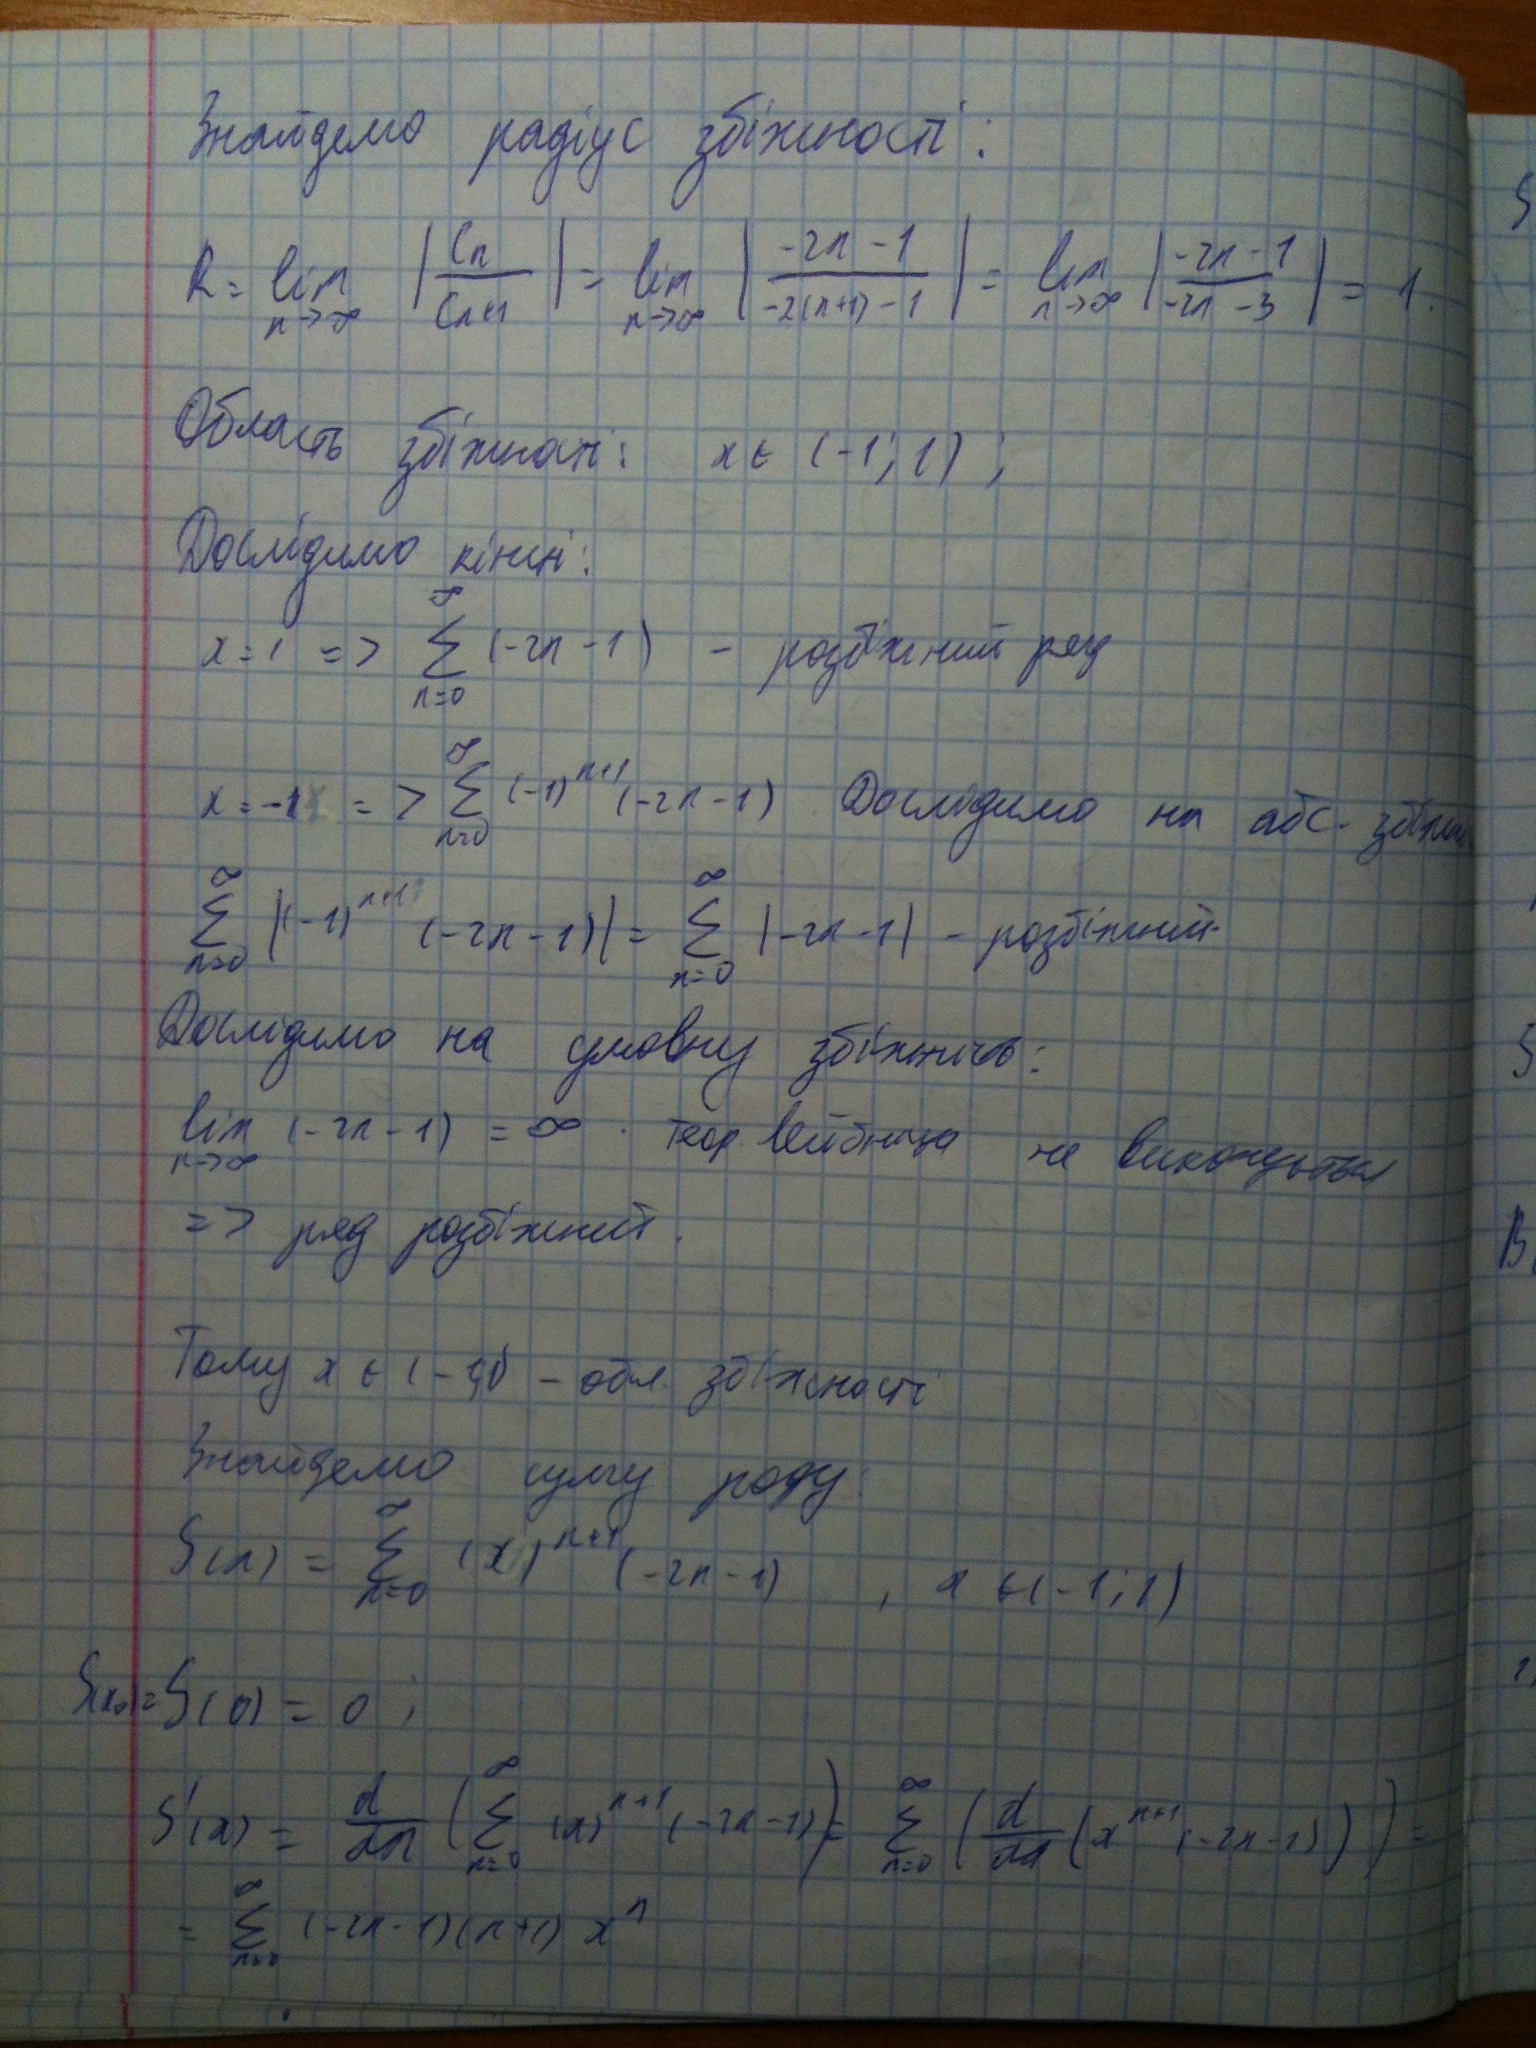 Знайдемо радіус збіжності:
R = lim n→∞ |Cn / Cn+1| = lim n→∞ |(-2n-1) / (-2(n+1)-1)| = lim n→∞ |(-2n-1) / (-2n-3)| = 1.
Область збіжності: x ∈ (-1; 1);
Дослідимо кінці:
x=1 => ∑ n=0 ∞ (-2n-1) - розбіжний ряд
x=-1 => ∑ n=0 ∞ (-1)^{n+1} (-2n-1) Дослідимо на абс. збіжн
∑ n=0 ∞ |(-1)^{n+1} (-2n-1)| = ∑ n=0 ∞ |-2n-1| - розбіжний.
Дослідимо на умовну збіжність:
lim n→∞ (-2n-1) = ∞. теор. Лейбніца не виконується
=> ряд розбіжний.
Тому x ∈ (-1;1) - обл. збіжності
Знайдемо суму ряду:
S(x) = ∑ n=0 ∞ (x)^{n+1} (-2n-1), x ∈ (-1; 1)
S(x₀) = S(0) = 0;
S'(x) = d/dx (∑ n=0 ∞ (x)^{n+1} (-2n-1)) = ∑ n=0 ∞ (d/dx (x^{n+1} (-2n-1))) =
= ∑ n=0 ∞ (-2n-1)(n+1) x^n